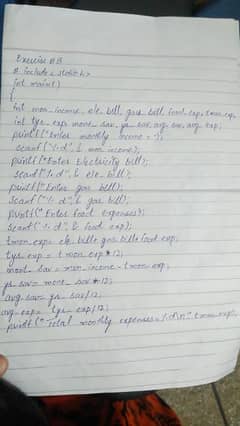 Exercise 08
# include <stdio.h>
int main()
{
int mon_income, ele_bill, gas_bill, food_exp, tmon_exp,
int tys_exp, mont_sav, ys_sav, avg_sav, avg_exp;
printf("Enter monthly income = ");
scanf("%d", & mon_income);
printf("Enter Electricity bill);
scanf("%d", & ele_bill);
printf("Enter gas bill);
scanf("%d", & gas_bill);
printf("Enter food expenses);
scanf("%d", & food_exp);
tmon_exp = ele_bill + gas_bill + food_exp
tys_exp = tmon_exp * 12;
mont_sav = mon_income - tmon_exp
ys_sav = mont_sav * 12;
avg_sav = ys_sav/12;
avg_exp = tys_exp/12;
printf("Total monthly expenses = %d\n" tmon_exp